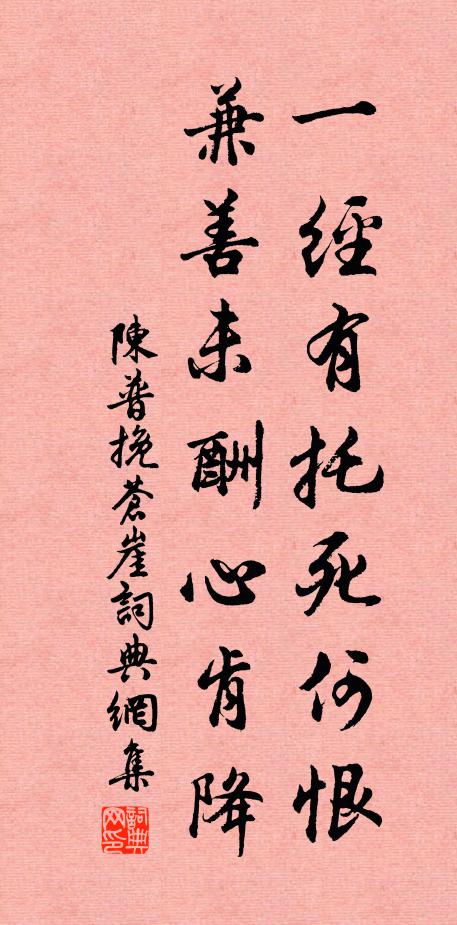 一經有托死何恨
兼善未酬心肯降
陳普挽蒼崖詞典網集
詞典网印